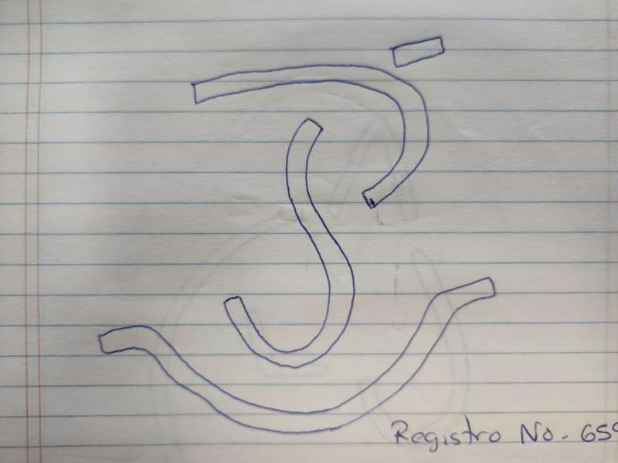 Registro No. 659